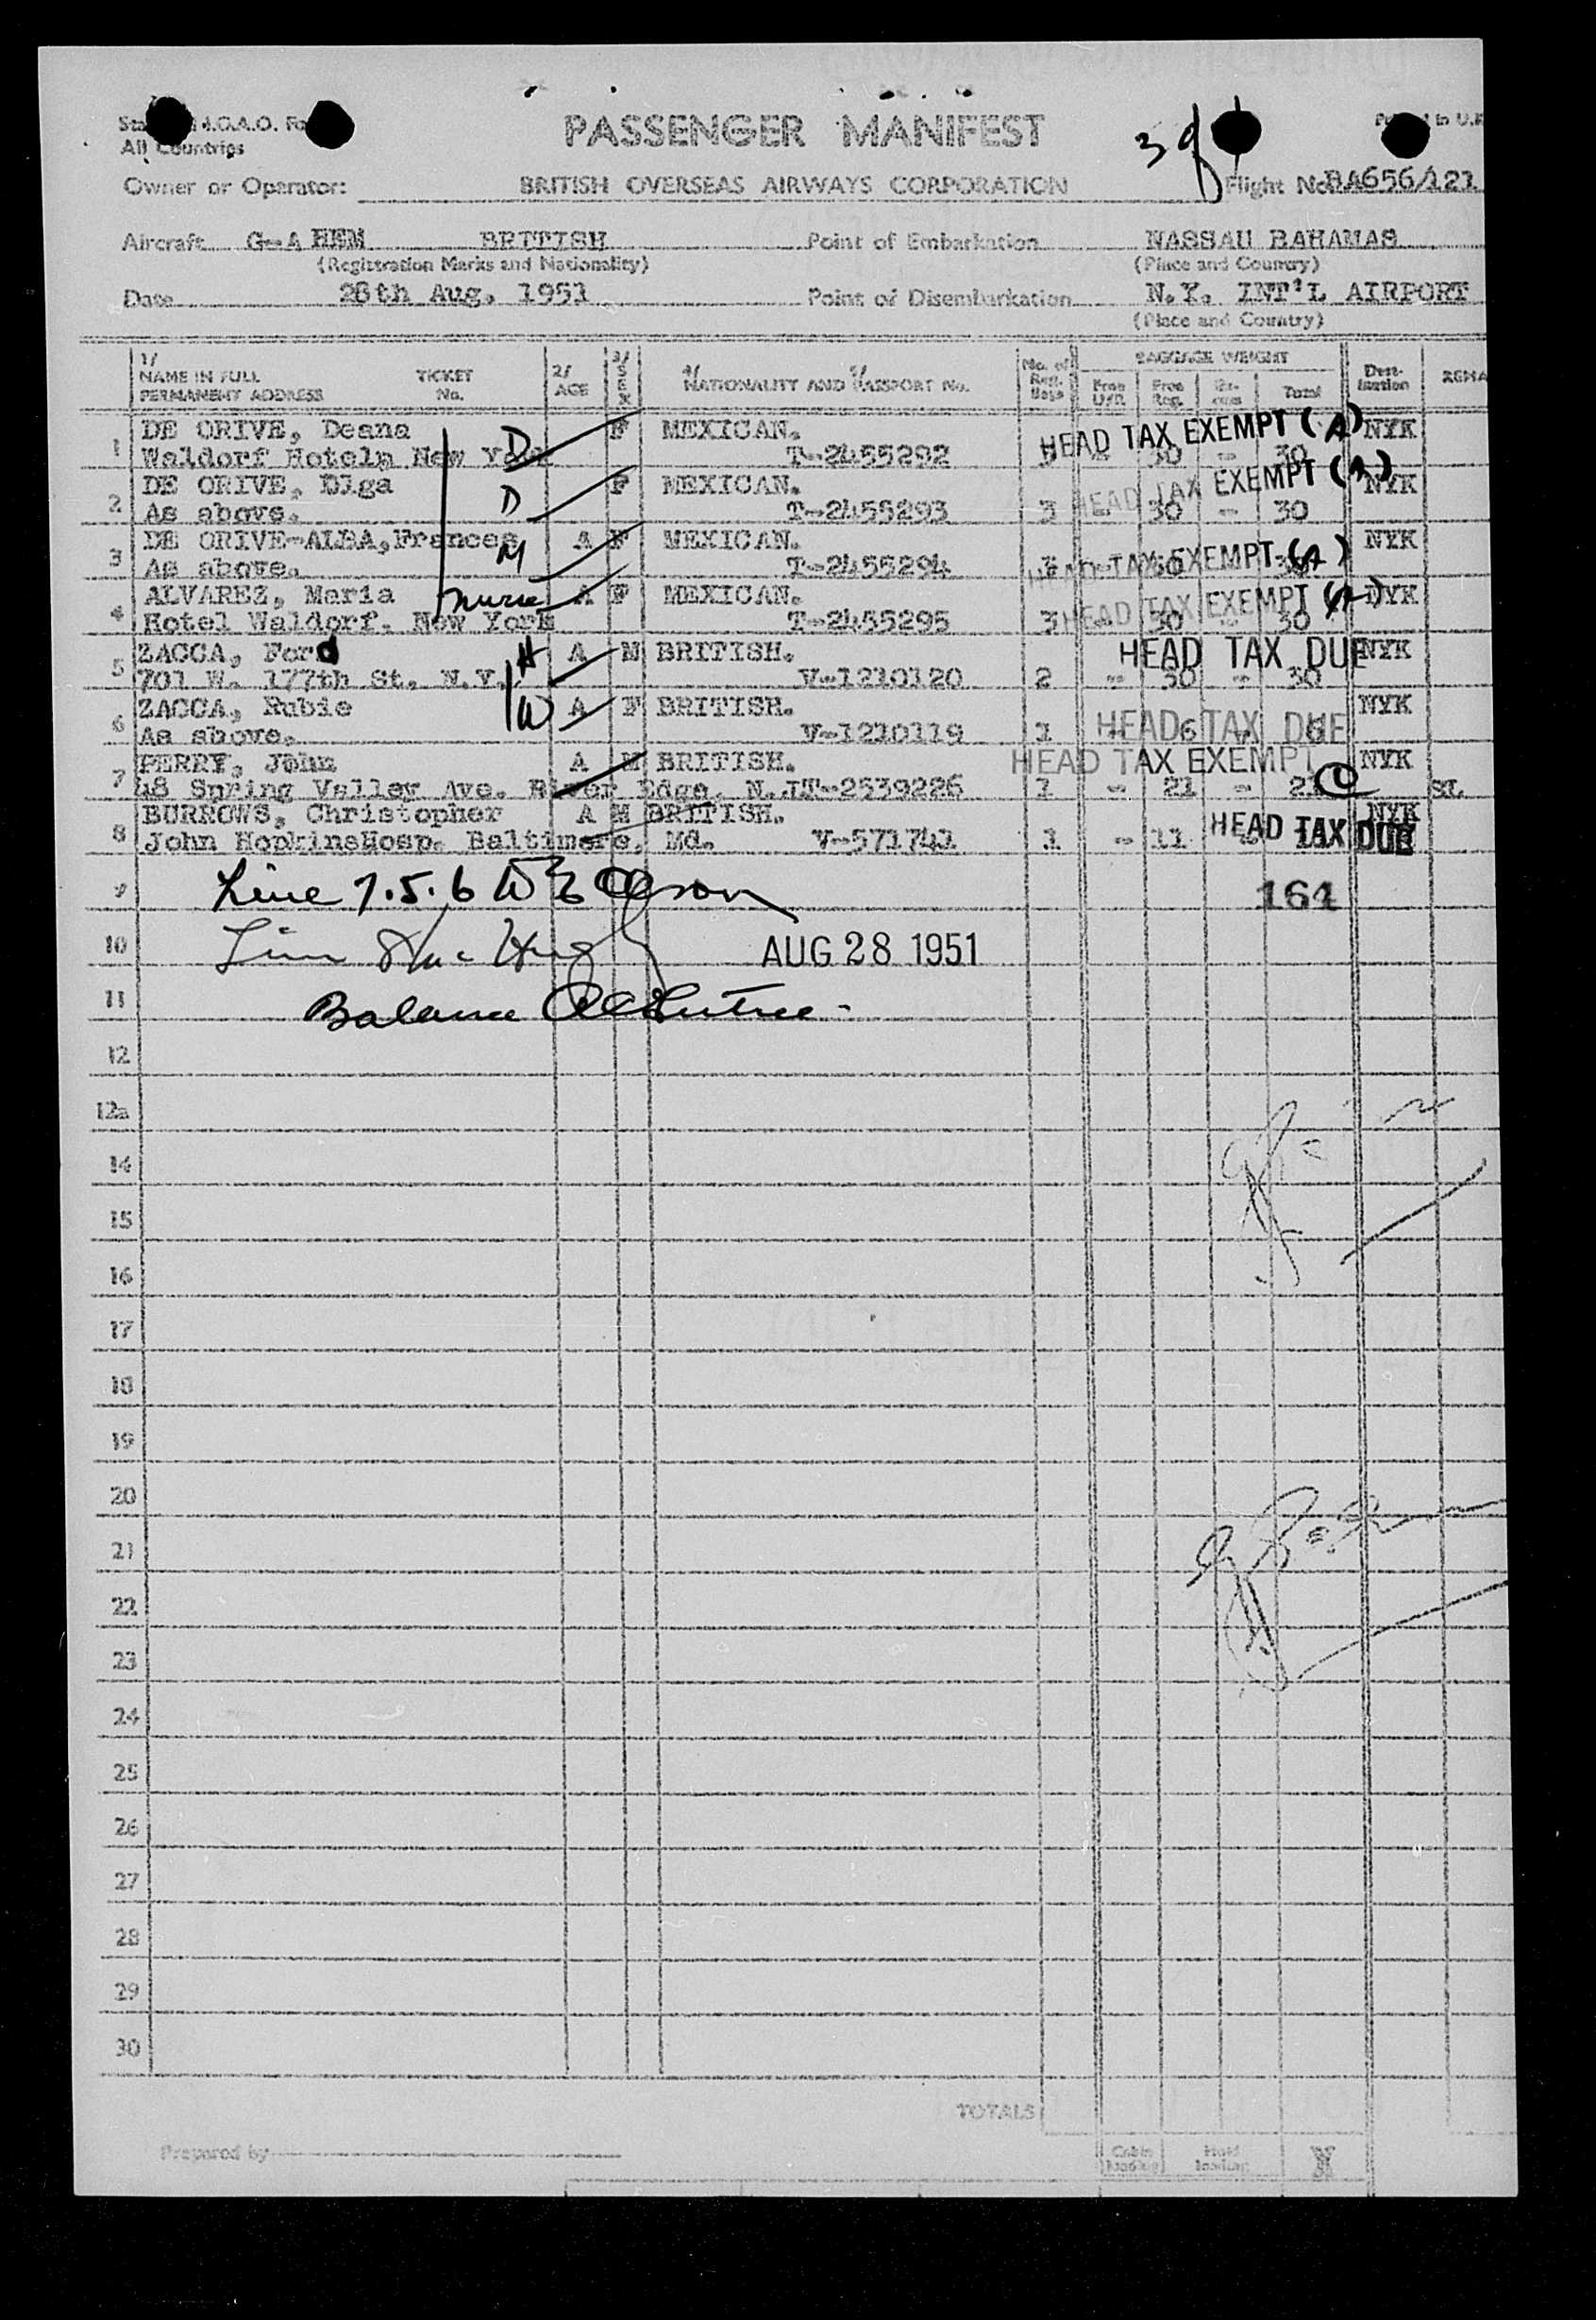 All Countries
PASSENGER MANIFEST
Owner or Operator: BRITISH OVERSEAS AIRWAYS CORPORATION Flight No. BA656/121
Aircraft G-A HEM BRITISH Point of Embarkation NASSAU BAHAMAS
(Registration Marks and Nationality) (Place and Country)
Date 28th Aug. 1951 Point of Disembarkation N.Y. INT'L AIRPORT
(Place and Country)
1/ NAME IN FULL PERMANENT ADDRESS TICKET No. 2/ AGE 3/ SEX 4/ NATIONALITY AND PASSPORT No. No. of BAGGAGE WEIGHT Free Free Reg. Total Destination REMA
1 DE ORIVE, Deana D F MEXICAN. HEAD TAX EXEMPT (A) NYK
Waldorf Hotelm New York T-2455292 3 - 30 - 30
2 DE ORIVE, Olga D F MEXICAN. HEAD TAX EXEMPT NYK
As above. T-2455293 3 - 30 - 30
3 DE ORIVE-ALBA, Frances M A F MEXICAN. HEAD TAX EXEMPT NYK
As above. T-2455294 30
4 ALVAREZ, Maria nurse A F MEXICAN. HEAD TAX EXEMPT NYK
Hotel Waldorf. New York T-2455295 3 - 30 - 30
5 ZACCA, Ford H A M BRITISH. HEAD TAX DUE NYK
701 W. 177th St. N.Y. V-1210120 2 - 30 - 30
6 ZACCA, Rubie W A F BRITISH. HEAD TAX DUE NYK
As above. V-1210119 1 - 6
7 PERRY, John A M BRITISH. HEAD TAX EXEMPT C NYK
48 Spring Valley Ave. River Edge, N.J T-2539226 1 - 21 - 21 SL
8 BURROWS, Christopher A M BRITISH. NYK
John HopkinsHosp. Baltimore, Md. V-571741 1 - 11 HEAD TAX DUE
9 Line 7.5.6 164
10 AUG 28 1951
11 Balance
12
12a
14
15
16
17
18
19
20
21
22
23
24
25
26
27
28
29
30
TOTALS
Prepared by